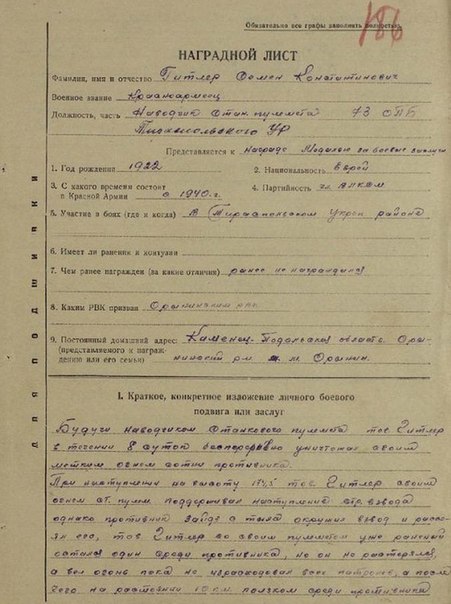 Обязательно все графы заполнить полностью.
186
НАГРАДНОЙ ЛИСТ
Фамилия, имя и отчество Гитлер Семен Константинович
Военное звание Красноармеец
Должность, часть Наводчик Стан. пулмета 73 ОПБ
Тираспольского УР
Представляется к Награде Медалью за боевые заслуги
1. Год рождения 1922 2. Национальность Еврей
3. С какого времени состоит
в Красной Армии с 1940 г. 4. Партийность чл. ВЛКСМ
5. Участие в боях (где и когда) В Тираспольском Укреп районе
6. Имеет ли ранения и контузии
7. Чем ранее награжден (за какие отличия) ранее не награждался
8. Каким РВК призван Орынинским рвк
9. Постоянный домашний адрес: Каменец-Подольская область. Оры-
(представляемого к награж-
дению или его семьи) нинский р-н м. Орынин.
для подшивки
I. Краткое, конкретное изложение личного боевого
подвига или заслуг
Будучи наводчиком Станкового пулмета тов. Гитлер
в течении 8 суток беспрерывно уничтожал своим
метким огнем сотни противника.
При наступлении на высоту 174,5 тов. Гитлер своим
огнем ст. пулм. поддерживал наступление стр. взвода
однако противник зайдя с тыла окружил взвод и рассе-
ял его, тов Гитлер со своим пулметом уже раненый
остался один среди противника, но он не растерялся,
а вел огонь пока не израсходовал всех патронов, а после
чего на расстоянии 10 км. ползком среди противника